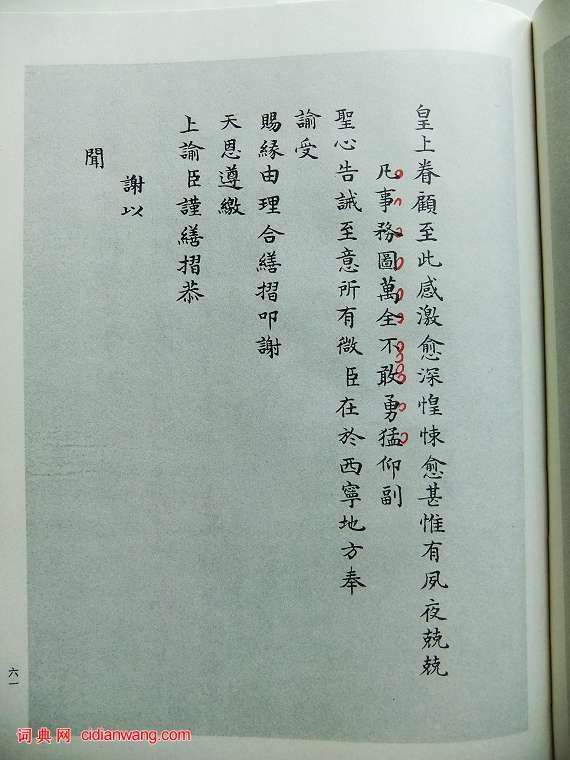 皇上眷顧至此感激愈深惶悚愈甚惟有夙夜兢兢
凡事務圖萬全不敢勇猛仰副
聖心告誡至意所有微臣在於西寧地方奉
諭受
賜緣由理合繕摺叩謝
天恩遵繳
上諭臣謹繕摺恭
謝以
聞
六一
词典网 cidianwang.com